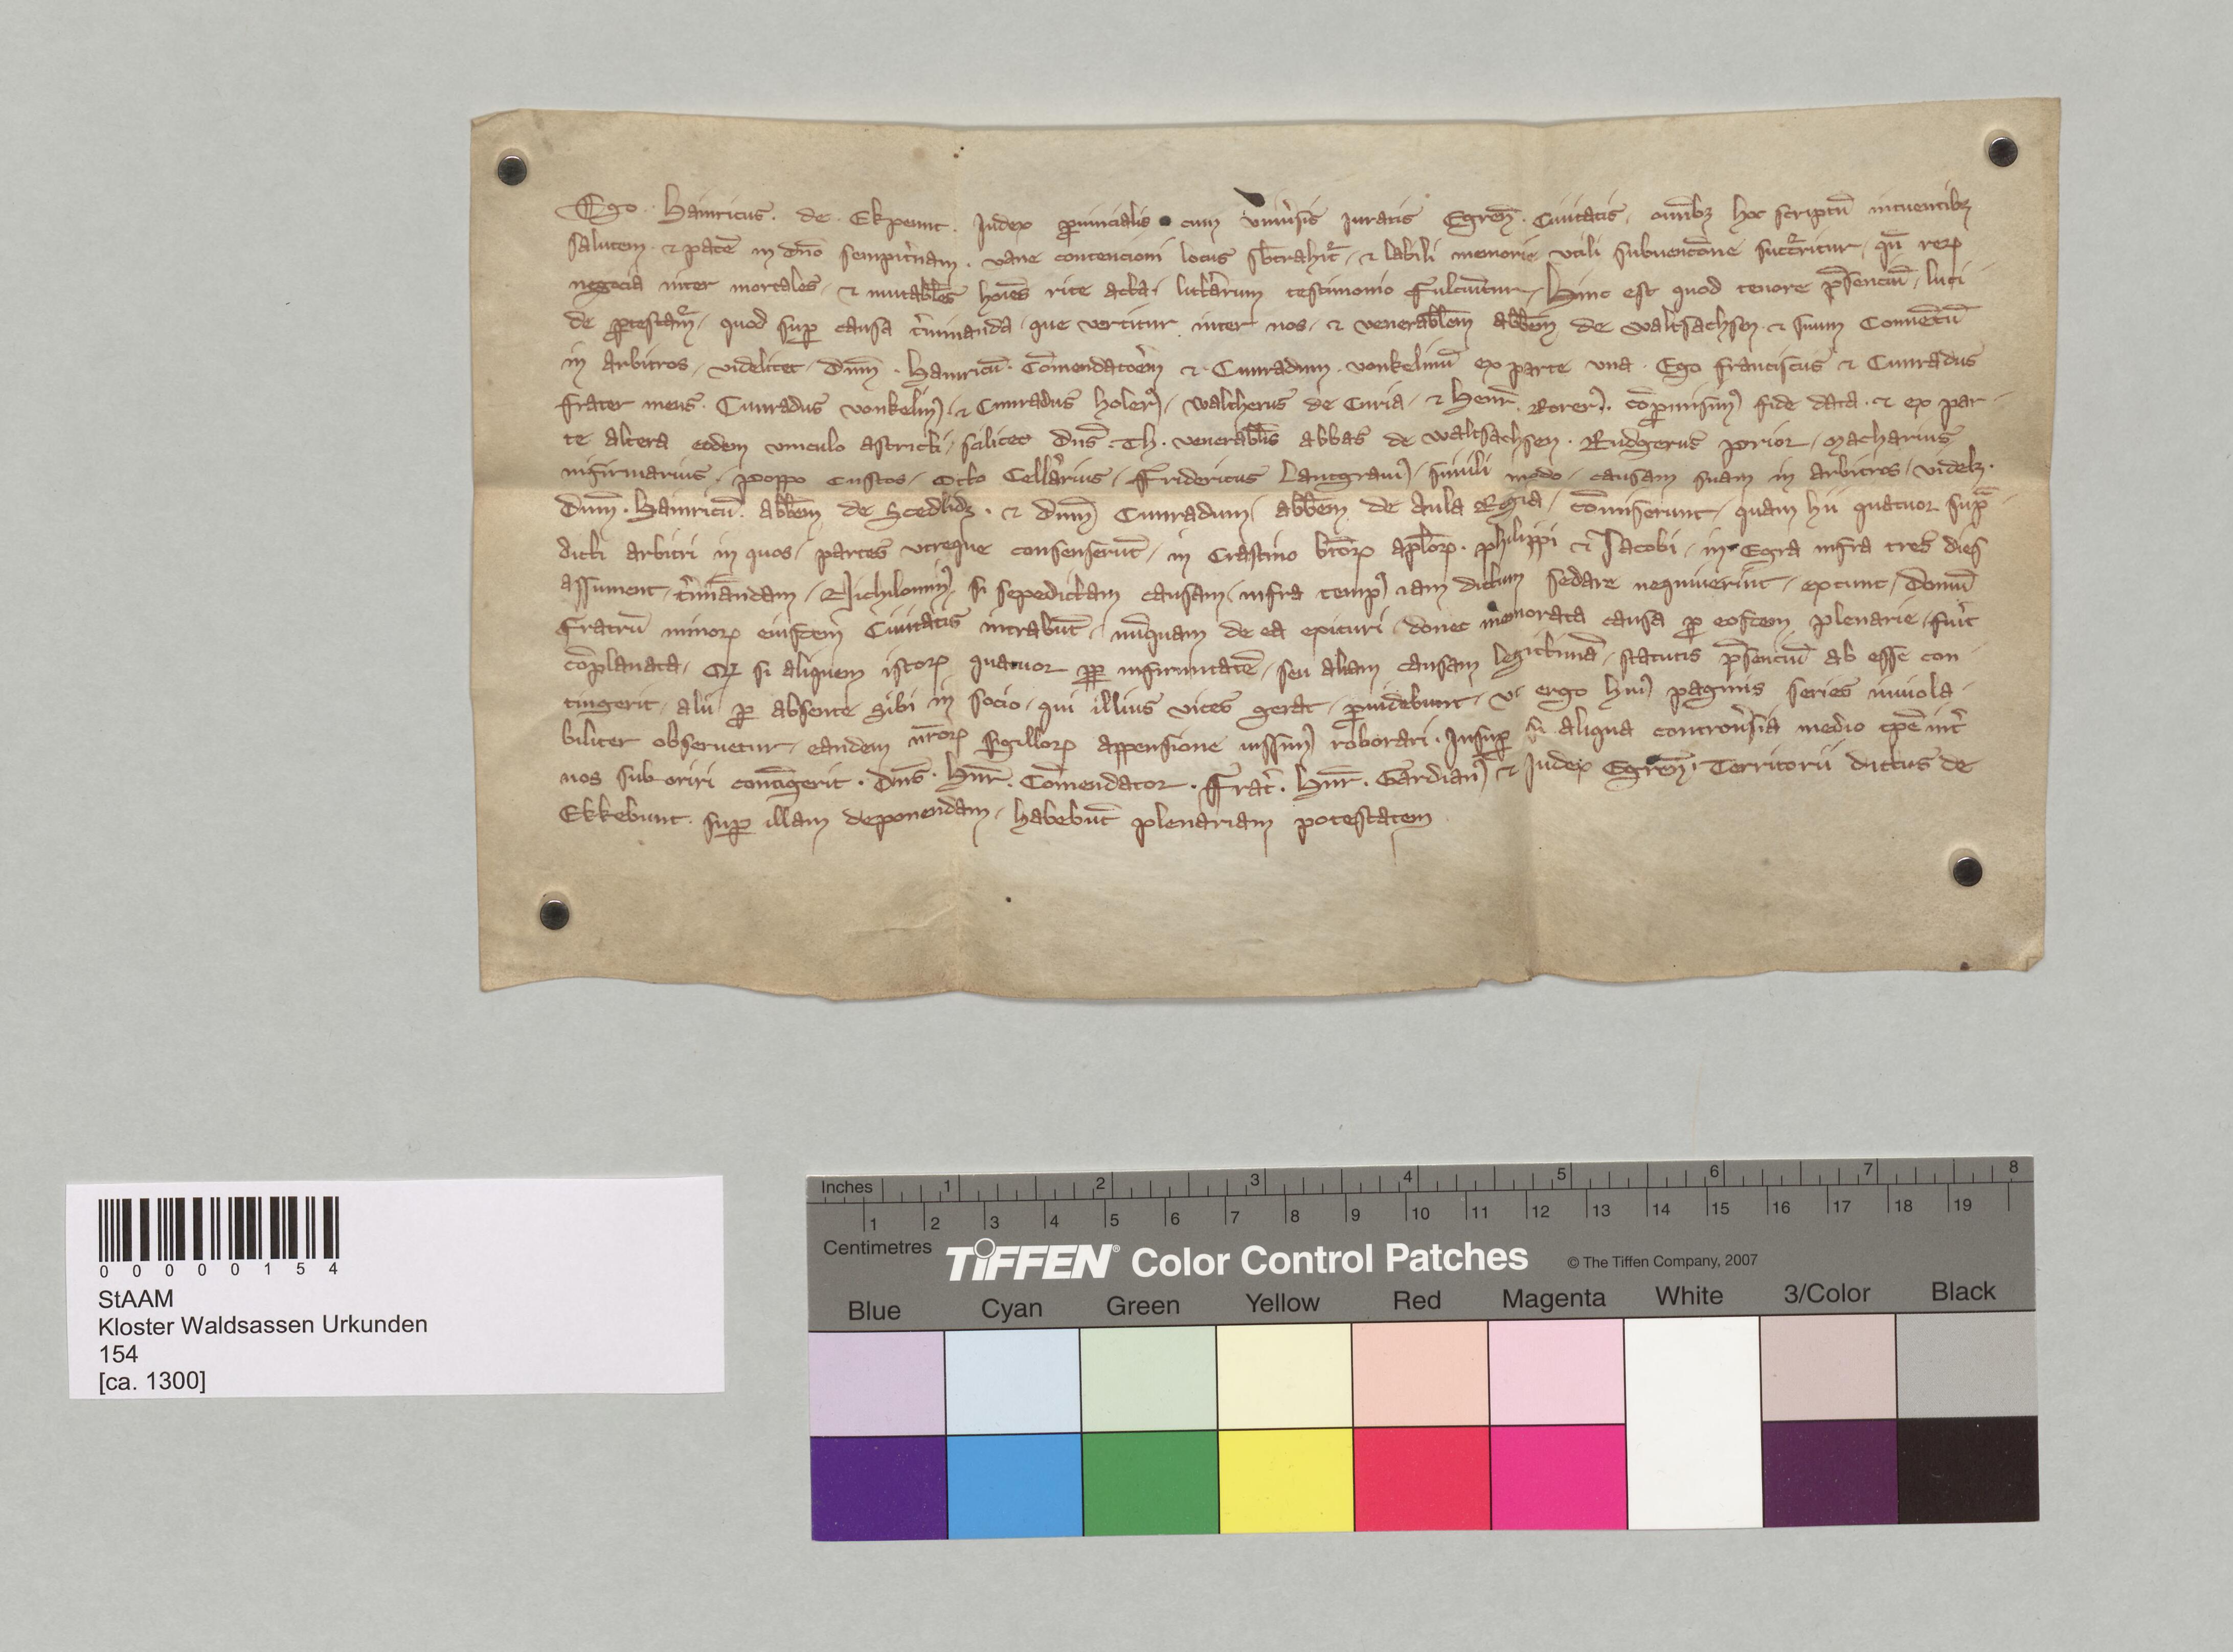 Ego · Hainricus · de · Ekpennt · Judex p̱uincialis cum vniu̓sis juratis Egreñ · Ciuitatis · om̄ibꝫ hoc scriptū intuentibꝫ
salutem · ⁊ pacē in dn̄o sempit̓nam · vane contencioni locus sb̄trahit᷑ · ⁊ labili memorie vtili subuenc̄one succ̄ritur · qn̄ reꝝ
negocia inter mortales · ⁊ mutabl̄es hoīes rite acta · litt̓arum testimonio fulciūtur · Hinc est quod tenore p̄senciū · luci
de ꝓtestam᷑ · quod suꝑ causa t̓minanda · que vertitur inter nos · ⁊ venerabl̄em abb̄em de Waltsachsen · ⁊ suum Conuētū
in arbitros · videlicet · Dn̄m · Hainricū · Cōmendatoēm ⁊ · Cunradum · vonkelinū ex parte vna · Ego franciscus ⁊ Cunradus
frater meus · Cunradus vonkelinꝰ · ⁊ Cunradus holerꝰ · Waltherus de Curia · ⁊ Henr̄ · Rorerꝰ · cōꝓmisimꝰ fide data · ⁊ ex par-
te altera eodem vinculo astricti · scilicet Dn̄s · Th · venerabl̄is abbas de Waltsachsen · Rudgerus prior · Macharius
infirmarius · poppo custos · Otto Cell̓arius · Fridericus Lantgrauiꝰ · simili modo · causam suam in arbitros · videlꝫ ·
Dn̄m · Hainricū · abb̄em de Scedlidz · ⁊ Dn̄m Cunradum abb̄em de Aula Regia · cōmiserunt · quam hii quatuor sup̄ᵃ
dicti arbitri in quos · partes vtreque consenserūt · in Crastino bt̄oꝝ apl̄oꝝ · philippi ⁊ Jacobi · in Egra infra tres dies
assument · t̓minandam · Nichilominꝰ · si sepedictam causam · infra tempꝰ iam dictum sedare nequiuerint · extunc · Domū
fratrū minoꝝ eiusdem Ciuitatis intrabūt · nūquam de ea exituri · donec memorata causa ꝑ eosdem plenarie · fuīt
cōplanata · Qꝫ si aliquem istoꝝ quatuor ꝓꝑ infirmitatē · seu aliam causam legittimā · statutis p̄senciū ab esse con-
tingerit · alii ꝑ absente sibi in socio · qui illius vices gerat · ꝓuidebunt · vt ergo huiꝰ paginis series inuiola-
biliter obseruetur · eandem nr̄oꝝ sigilloꝝ appensione iussimꝰ roborari · Insuꝑ si aliqua controu̓sia medio tp̄e int̓
nos suboriri contīgerit · Dn̄s · Hn̄r · Cōmendator · Frat̓ · Hn̄r · Gardianꝰ ⁊ Judex Egreñ · Territorii dictus de
Ekkebunt · suꝑ illam deponendam · habebūt plenariam potestatem
0 0 0 0 0 1 5 4
StAAM
Kloster Waldsassen Urkunden
154
[ca. 1300]
Inches 1 2 3 4 5 6 7 8
1 2 3 4 5 6 7 8 9 10 11 12 13 14 15 16 17 18 19
Centimetres TIFFEN® Color Control Patches © The Tiffen Company, 2007
Blue Cyan Green Yellow Red Magenta White 3/Color Black